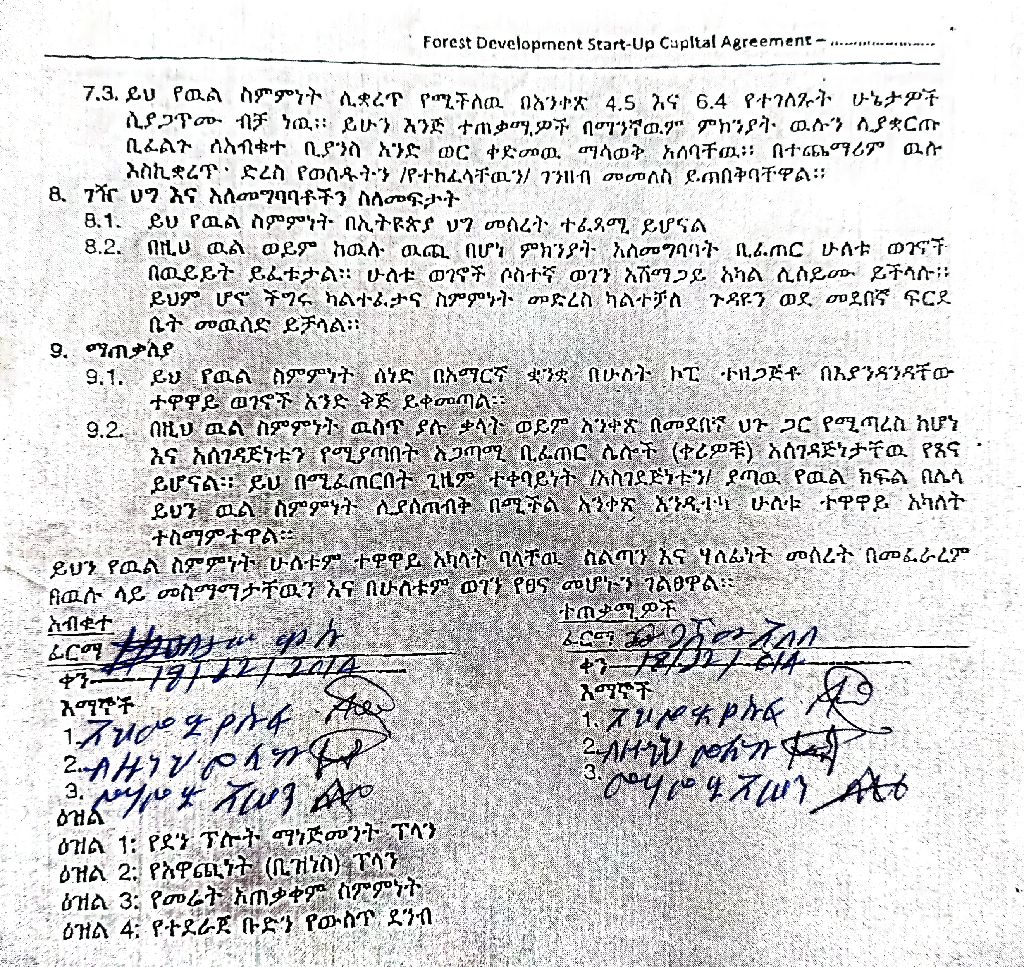 Forest Development Start-Up Capital Agreement – .....................
7.3. ይህ የዉል ስምምነት ሊቋረጥ የሚችለዉ በአንቀጽ 4.5 እና 6.4 የተገለጹት ሁኔታዎች
ሲያጋጥሙ ብቻ ነዉ፡፡ ይሁን እንጅ ተጠቃሚዎች በማንኛዉም ምክንያት ዉሉን ሊያቋርጡ
ቢፈልጉ ለአብቁተ ቢያንስ አንድ ወር ቀድመዉ ማሳወቅ አለባቸዉ፡፡ በተጨማሪም ዉሉ
እስኪቋረጥ ድረስ የወሰዱትን /የተከፈላቸዉን/ ገንዘብ መመለስ ይጠበቅባቸዋል፡፡
8. ገዥ ህግ እና አለመግባባቶችን ስለመፍታት
8.1. ይህ የዉል ስምምነት በኢትዩጵያ ህግ መሰረት ተፈጻሚ ይሆናል
8.2. በዚህ ዉል ወይም ከዉሉ ዉጪ በሆነ ምክንያት አለመግባባት ቢፈጠር ሁለቱ ወገኖች
በዉይይት ይፈቱታል፡፡ ሁለቱ ወገኖች ሶስተኛ ወገን አሸማጋይ አካል ሊሰይሙ ይችላሉ፡፡
ይህም ሆኖ ችግሩ ካልተፈታና ስምምነት መድረስ ካልተቻለ ጉዳዩን ወደ መደበኛ ፍርደ
ቤት መዉሰድ ይቻላል፡፡
9. ማጠቃለያ
9.1. ይህ የዉል ስምምነት ሰነድ በአማርኛ ቋንቋ በሁለት ኮፒ ተዘጋጅቶ በእያንዳንዳቸው
ተዋዋይ ወገኖች አንድ ቅጅ ይቀመጣል፡፡
9.2. በዚህ ዉል ስምምነት ዉስጥ ያሉ ቃላት ወይም አንቀጽ በመደበኛ ህጉ ጋር የሚጣረስ ከሆነ
እና አስገዳጅነቱን የሚያጣበት አጋጣሚ ቢፈጠር ሌሎች (ቀሪዎቹ) አስገዳጅነታቸዉ የጸና
ይሆናል፡፡ ይህ በሚፈጠርበት ጊዜም ተቀባይነት /አስገደጅነቱን/ ያጣዉ የዉል ክፍል በሌላ
ይህን ዉል ስምምነት ሊያስጠብቅ በሚችል አንቀጽ እንዲተካ ሁለቱ ተዋዋይ አካለት
ተስማምተዋል፡፡
ይህን የዉል ስምምነት ሁለቱም ተዋዋይ አካላት ባላቸዉ ስልጣን እና ሃላፊነት መሰረት በመፈራረም
በዉሉ ላይ መስማማታቸዉን እና በሁለቱም ወገን የፀና መሆኑን ገልፀዋል፡፡
አብቁተ
ፊርማ
ቀን 19/12/2014
እማኞች
1.
2.
3.
ተጠቃሚዎች
ፊርማ
ቀን
እማኞች
1.
2.
3.
ዕዝል
ዕዝል 1: የደን ፕሎት ማነጅመንት ፕላን
ዕዝል 2: የአዋጪነት (ቢዝነስ) ፕላን
ዕዝል 3: የመሬት አጠቃቀም ስምምነት
ዕዝል 4: የተደራጀ ቡድን የውስጥ ደንብ